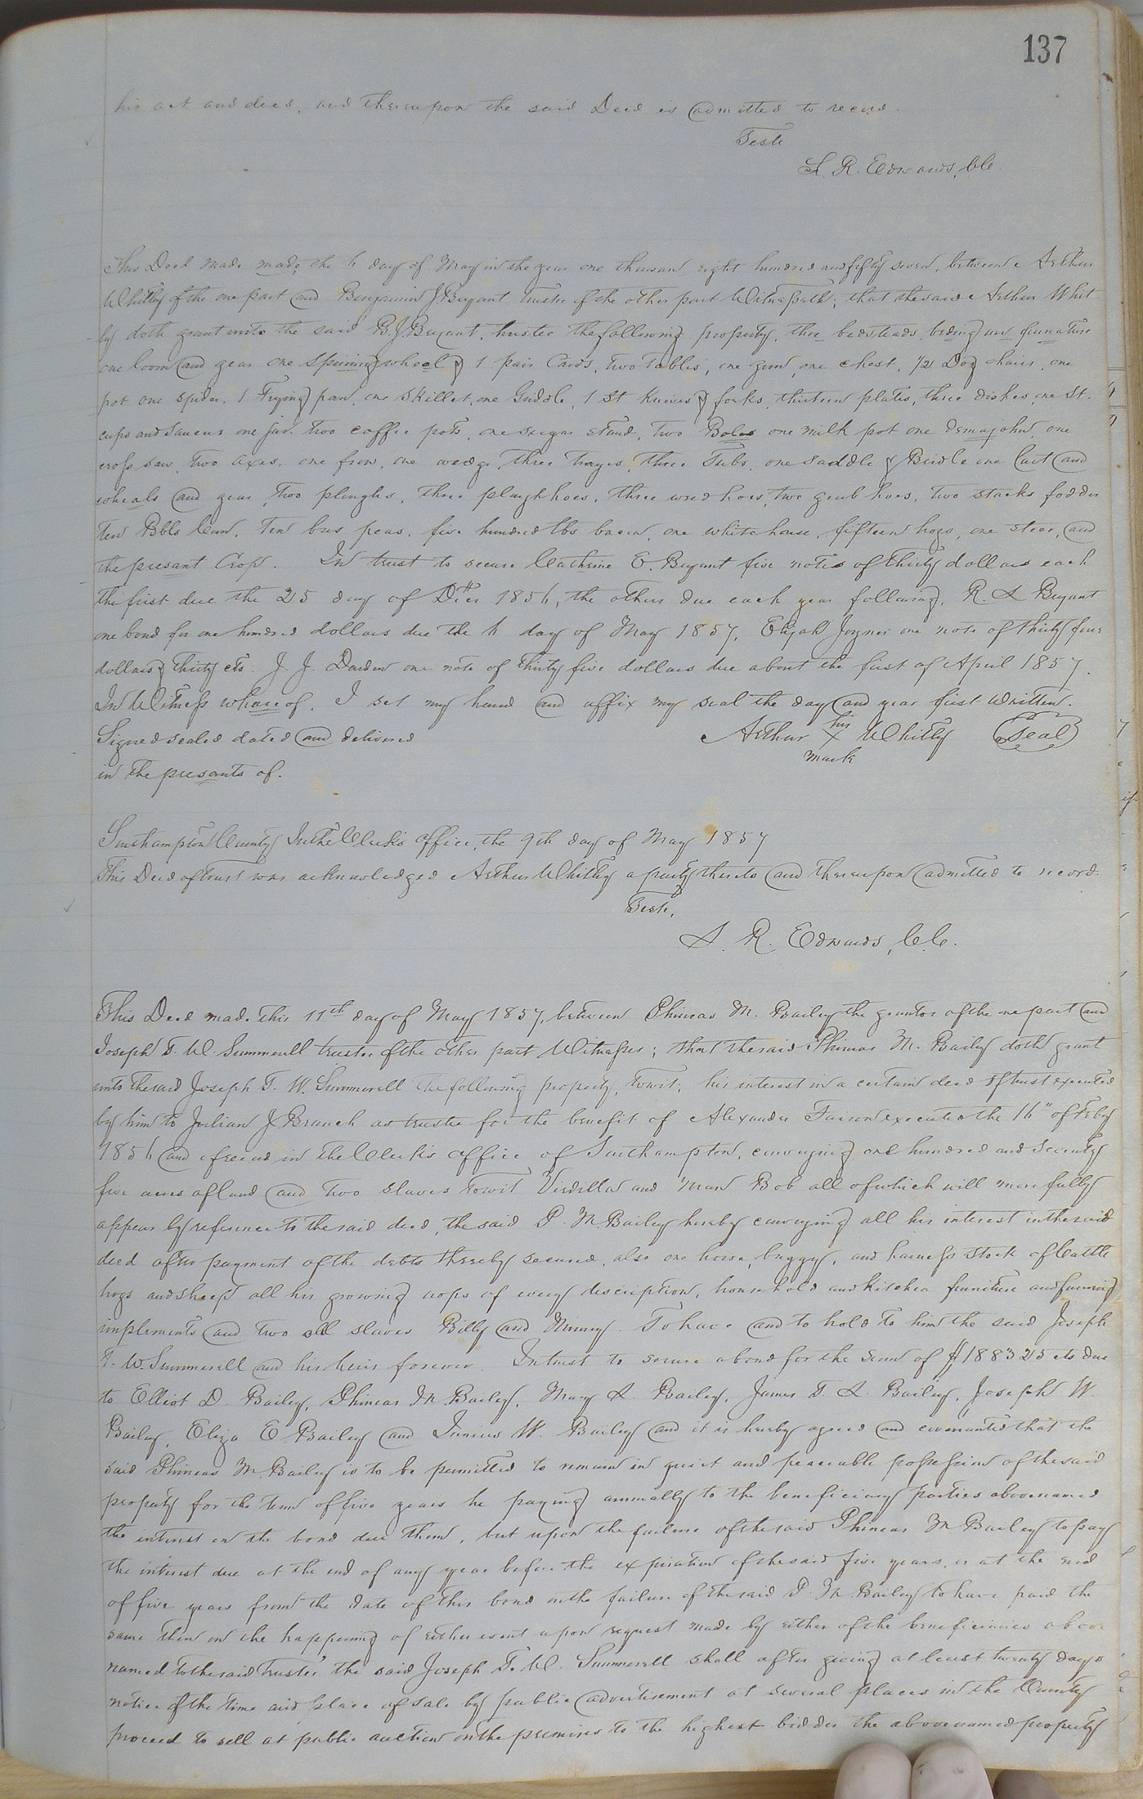 137
his act and deed, and thereupon the said Deed is admitted to record.
Teste
L. R. Edwards, C.C.
This Deed made made the 6 day of May in the year one thousand eight hundred and fifty seven, between Arthur
Whitby of the one part and Benjamin J Bryant trustee of the other part Witnesseth; that the said Arthur Whit
by doth grant unto the said B. J. Bryant, trustee the following property, three bedsteads, beding and
one loom and gear one spining wheel & 1 pair Cards, two tables, one gun, one chest, 1/2 Doz chairs, one
pot one spider, 1 frying pan, one skillet, one Griddle, 1 St Knives & forks, thirteen plates, three dishes, one St.
cups and Saucers one jar, two coffee pots, one sugar stand, two Boles one milk pot one demajohn, one
cross saw, two axes, one frow, one wedge, three trayes, three Tubs, one saddle & Bridle one Cart and
wheals and gear, two ploughs, three ploughhoes, three weed hoes, two grub hoes, two stacks fodder
ten Bbls Corn, ten bus peas, five hundred lbs bacon, one white house, fifteen hogs, one steer, and
the presant Crop. In trust to secure Catharine E. Bryant five notes of thirty dollars each
the first due the 25 day of Decr 1856, the others due each year following, R. A Bryant
one bond for one hundred dollars due the 6 day of May 1857, Elijah Joyner one note of thirty four
dollars & thirty cts. J. J. Darden one note of thirty five dollars due about the first of April 1857.
In Witness whareof, I set my hand and affix my seal the day and year first written.
Signed sealed dated and delivered Arthur his X mark Whitby Seal
in the presants of.
Southampton County In the Clerk's office, the 9th day of May 1857
This Deed of trust was acknowledged Arthur Whitby a party thereto and thereupon admitted to record.
Teste,
L. R. Edwards, C.C.
This Deed made this 11th day of May 1857, between Phineas M. Bailey the grantor of the one part and
Joseph T. W. Summerell trustee of the other part Witnesses; that the said Phineas M. Bailey doth grant
unto the said Joseph T. W. Summerell the following property, towit, his interest in a certain deed of trust executed
by him to Julian J Branch as trustee for the benefit of Alexander executed the 16" of Feby
1856 and of record in the Clerk's office of Southampton, conveying one hundred and seventy
five acres of land and two slaves towit and man Bob all of which will more fully
appear by reference to the said deed, the said P. M. Bailey hereby conveying all his interest in the said
deed after payment of the debts thereby secured, also one horse, buggy, and harness stock of Cattle
hogs and sheep all his growing crops of every description, household and kitchen furniture and farming
implements and two old slaves Billy and To have and to hold to him the said Joseph
T. W. Summerell and his heirs forever. In trust to secure a bond for the Sum of $1883 25 cts due
to Elliot D. Bailey, Phineas M. Bailey, Mary A. Bailey, James T. A. Bailey, Joseph W.
Bailey, Eliza E Bailey and Junius W. Bailey and it is hereby agreed and covenanted that the
said Phineas M. Bailey is to be permitted to remain in quiet and peaceable possession of the said
property for the term of five years he paying annually to the beneficiary parties above named
the interest on the bond due them, but upon the failure of the said Phineas M Bailey to pay
the interest due at the end of any year before the expiration of the said five years, or at the end
of five years from the date of this bond on the failure of the said P. M. Bailey to have paid the
same then on the happening of either event upon request made by either of the beneficiaries above
named to the said trustee the said Joseph T. W. Summerell shall after giving at least twenty days
notice of the time and place of sale by public advertisement at several places in the County
proceed to sell at public auction on the premises to the highest bidder the above named property